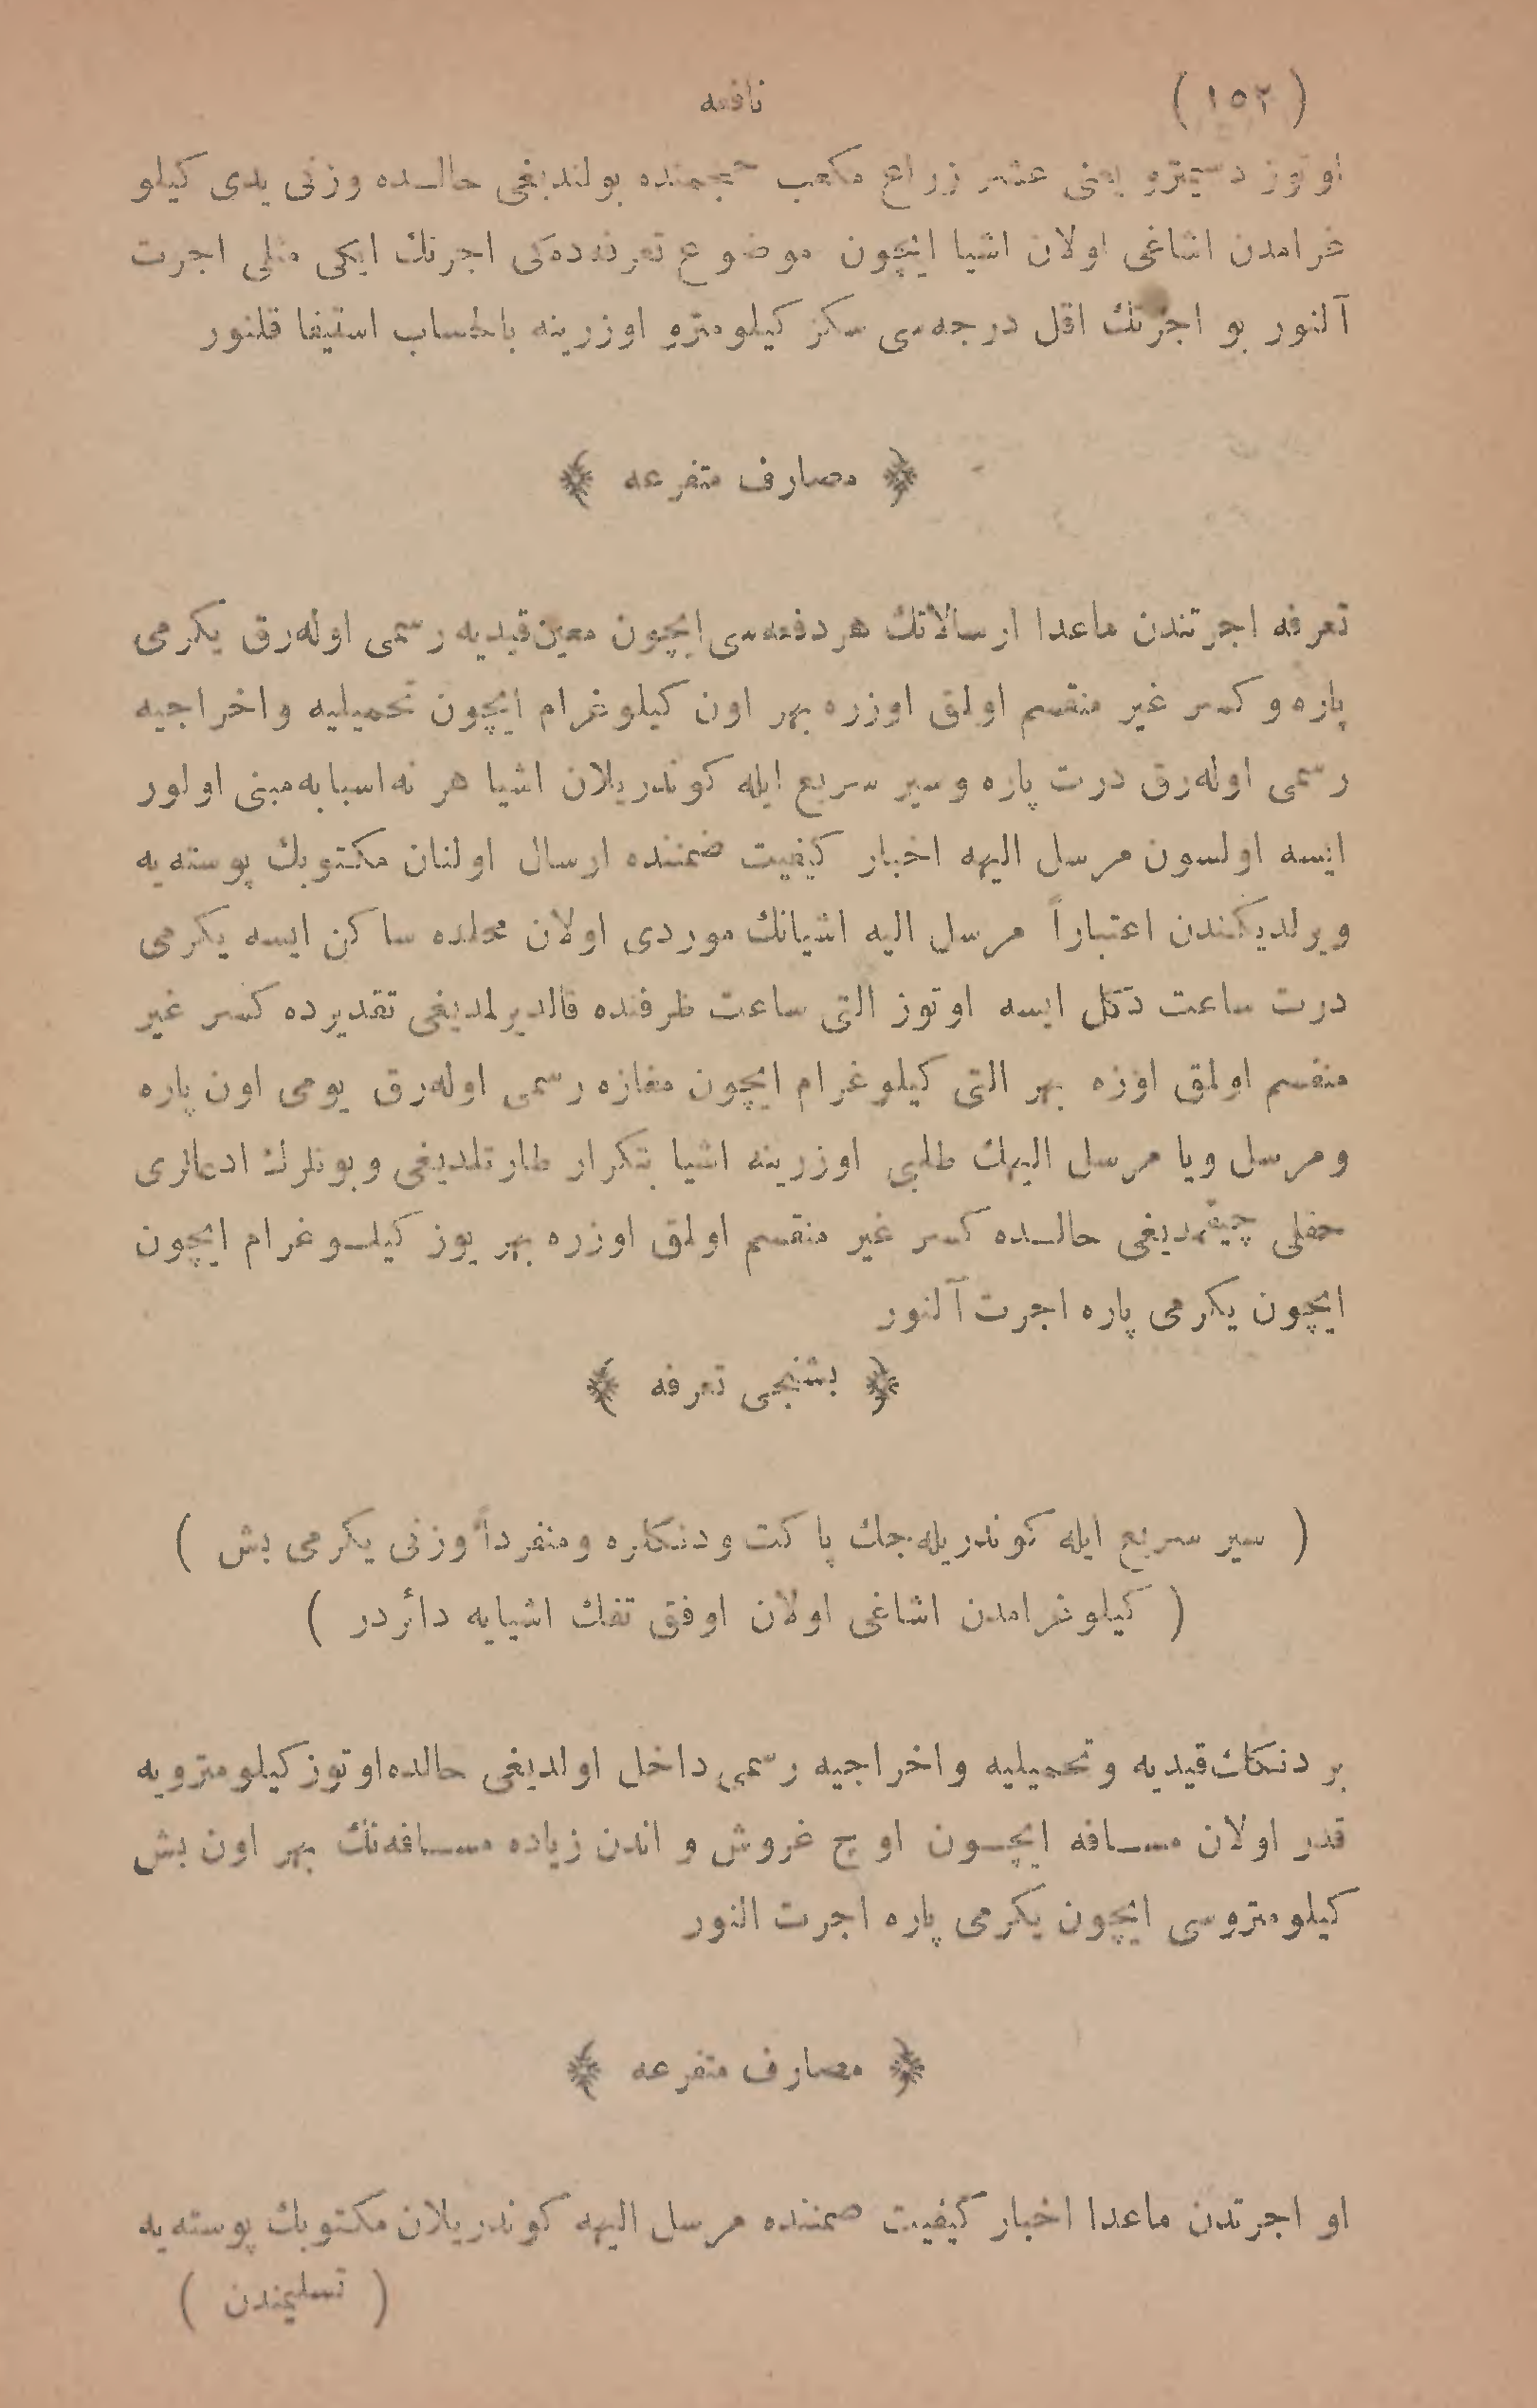 ( ١٥٢ ) نافعه
اوتوز دسیمترو یعنی عشر زراع مکعب حجمنده بولندیغی حالـده وزنی یدی کیلو
غرامدن اشاغی اولان اشیا ایچون موضوع تعرفه‌ده‌کی اجرتك ایکی مثلی اجرت
آلنور بو اجرتك اقل درجه‌سی سکز کیلومترو اوزرینه بالحساب استیفا قلنور
﴿ مصارف متفرعه ﴾
تعرفه اجرتندن ماعدا ارسالاتك هر دفعه‌سی ایچون معین قیدیه رسمی اوله‌رق یکرمی
پاره و کسر غیر منقسم اولمق اوزره بهر اون کیلوغرام ایچون تحمیلیه و اخراجیه
رسمی اوله‌رق درت پاره و سیر سریع ایله کوندریلان اشیا هر نه اسبابه مبنی اولور
ایسه اولسون مرسل الیهه اخبار کیفیت ضمننده ارسال اولنان مکتوبك پوسته‌یه
ویرلدیکندن اعتباراً مرسل الیه اشیانك موردی اولان محلده ساکن ایسه یکرمی
درت ساعت دکل ایسه اوتوز التی ساعت ظرفنده قالدیرلمدیغی تقدیرده کسر غیر
منقسم اولمق اوزه بهر التی کیلوغرام ایچون مغازه رسمی اوله‌رق یومی اون پاره
و مرسل ویا مرسل الیهك طلبی اوزرینه اشیا بتکرار طارتلدیغی و بونلرك ادعالری
حقلی چیقمدیغی حالـده کسر غیر منقسم اولمق اوزره بهر یوز کیلـوغرام ایچون
ایچون یکرمی پاره اجرت آلنور
﴿ بشنجی تعرفه ﴾
( سیر سریع ایله کوندریله‌جك پاکت و دنکلره و منفرداً وزنی یکرمی بش )
( کیلوغرامدن اشاغی اولان اوفق تفك اشیایه دائردر )
بر دنکك قیدیه و تحمیلیه و اخراجیه رسمی داخل اولدیغی حالده اوتوز کیلومترویه
قدر اولان مسـافه ایچـون اوچ غروش و اندن زیاده مسـافه‌نك بهر اون بش
کیلومتروسی ایچون یکرمی پاره اجرت النور
﴿ مصارف متفرعه ﴾
او اجرتدن ماعدا اخبار کیفیت ضمننده مرسل الیهه کوندریلان مکتوبك پوسته‌یه
( تسلیمندن )